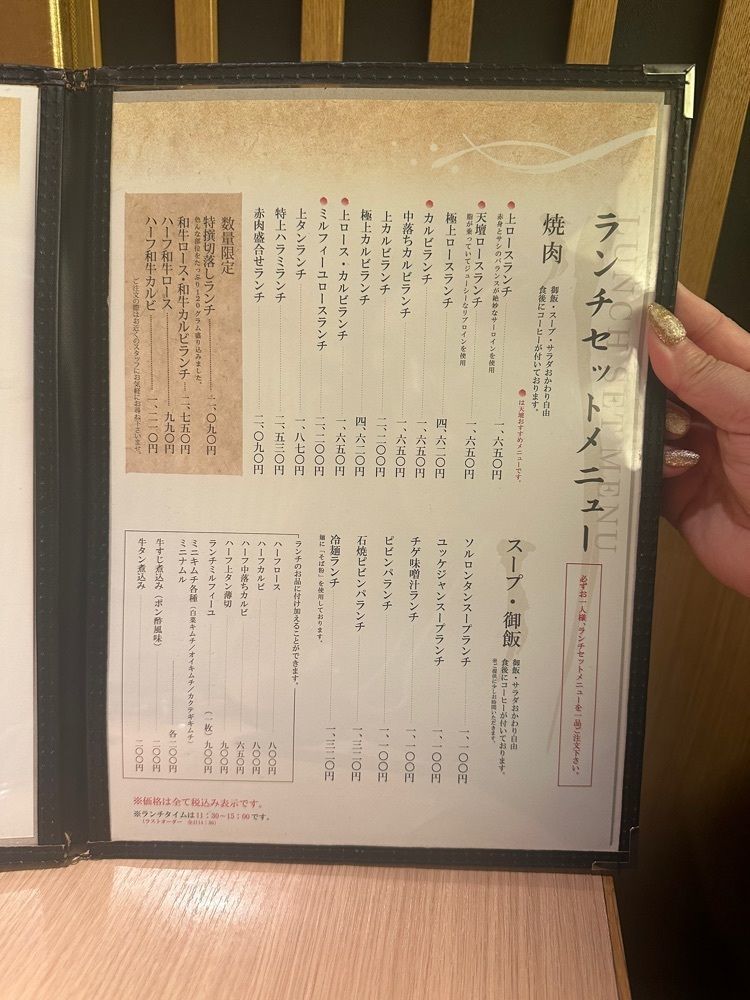 LUNCH SET MENU
ランチセットメニュー
必ずお一人様、ランチセットメニューを一品ご注文下さい。
焼肉
御飯・スープ・サラダおかわり自由
食後にコーヒーが付いております。
●は天壇おすすめメニューです。
●上ロースランチ 一、六五〇円
赤身とサシのバランスが絶妙なサーロインを使用
●天壇ロースランチ 一、六五〇円
脂が乗っていてジューシーなリブロインを使用
極上ロースランチ 四、六二〇円
●カルビランチ 一、六五〇円
中落ちカルビランチ 一、六五〇円
上カルビランチ 二、二〇〇円
極上カルビランチ 四、六二〇円
●上ロース・カルビランチ 一、六五〇円
●ミルフィーユロースランチ 二、二〇〇円
上タンランチ 一、八七〇円
特上ハラミランチ 二、五三〇円
赤肉盛合せランチ 二、〇九〇円
数量限定
特撰切落しランチ 二、〇九〇円
色んな部位をたっぷり120グラム盛り込みました。
和牛ロース・和牛カルビランチ 二、七五〇円
ハーフ和牛ロース 九九〇円
ハーフ和牛カルビ 一、二一〇円
ご注文の際はお近くのスタッフにお気軽にお尋ね下さいませ。
スープ・御飯
御飯・サラダおかわり自由
食後にコーヒーが付いております。
※ご提供に少しお時間いただきます。
ソルロンタンスープランチ 一、一〇〇円
ユッケジャンスープランチ 一、一〇〇円
チゲ味噌汁ランチ 一、一〇〇円
ビビンバランチ 一、一〇〇円
石焼ビビンバランチ 一、三二〇円
冷麺ランチ 一、三二〇円
麺に「そば粉」を使用しております。
ランチのお品に付け加えることができます。
ハーフロース 八〇〇円
ハーフカルビ 八〇〇円
ハーフ中落ちカルビ 六五〇円
ハーフ上タン薄切 九〇〇円
ランチミルフィーユ (一枚) 九〇〇円
ミニキムチ各種(白菜キムチ/オイキムチ/カクテギキムチ)
ミニナムル 各二〇〇円
牛すじ煮込み(ポン酢風味) 二〇〇円
牛タン煮込み 二〇〇円
※価格は全て税込み表示です。
※ランチタイムは11:30~15:00です。
(ラストオーダー 全日14:30)